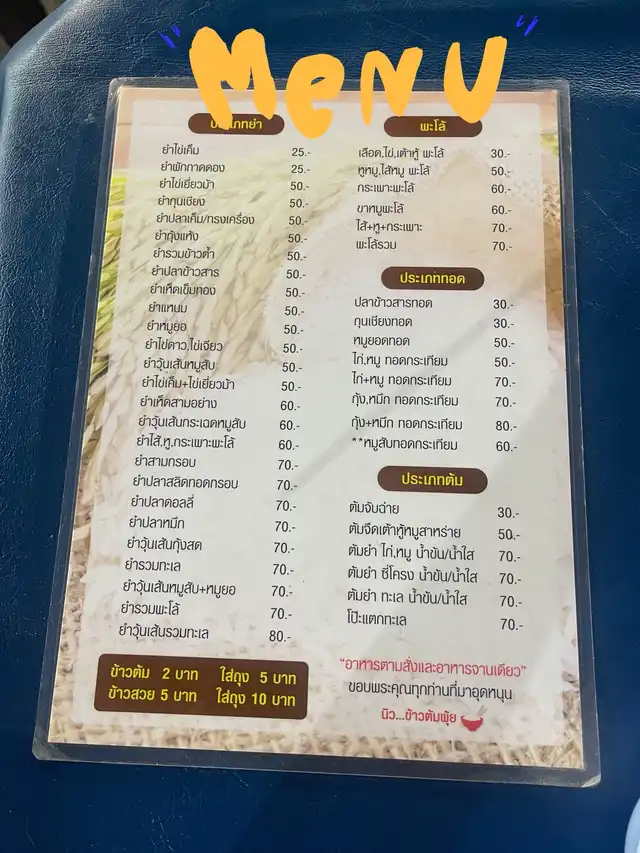 "MeNU"
ประเภทยำ
ยำไข่เค็ม 25.-
ยำผักกาดดอง 25.-
ยำไข่เยี่ยวม้า 50.-
ยำกุนเชียง 50.-
ยำปลาเค็ม/ทรงเครื่อง 50.-
ยำกุ้งแห้ง 50.-
ยำรวมข้าวต้ำ 50.-
ยำปลาข้าวสาร 50.-
ยำเห็ดเข็มทอง 50.-
ยำแหนม 50.-
ยำหมูยอ 50.-
ยำไข่ดาว,ไข่เจียว 50.-
ยำวุ้นเส้นหมูสับ 50.-
ยำไข่เค็ม+ไข่เยี่ยวม้า 50.-
ยำเห็ดสามอย่าง 60.-
ยำวุ้นเส้นกระเฉดหมูสับ 60.-
ยำไส้.หู.กระเพาะพะโล้ 60.-
ยำสามกรอบ 70.-
ยำปลาสลิดทอดกรอบ 70.-
ยำปลาดอลลี่ 70.-
ยำปลาหมึก 70.-
ยำวุ้นเส้นกุ้งสด 70.-
ยำรวมทะเล 70.-
ยำวุ้นเส้นหมูสับ+หมูยอ 70.-
ยำรวมพะโล้ 70.-
ยำวุ้นเส้นรวมทะเล 80.-
ข้าวต้ม 2 บาท ใส่ถุง 5 บาท
ข้าวสวย 5 บาท ใส่ถุง 10 บาท
พะโล้
เลือด,ไข่,เต้าหู้ พะโล้ 30.-
หูหมู,ไส้หมู พะโล้ 50.-
กระเพาะพะโล้ 60.-
ขาหมูพะโล้ 60.-
ไส้+หู+กระเพาะ 70.-
พะโล้รวม 70.-
ประเภททอด
ปลาข้าวสารทอด 30.-
กุนเชียงทอด 30.-
หมูยอดทอด 50.-
ไก่,หมู ทอดกระเทียม 50.-
ไก่+หมู ทอดกระเทียม 70.-
กุ้ง,หมึก ทอดกระเทียม 70.-
กุ้ง+หมึก ทอดกระเทียม 80.-
**หมูสับทอดกระเทียม 60.-
ประเภทต้ม
ต้มจับฉ่าย 30.-
ต้มจืดเต้าหู้หมูสาหร่าย 50.-
ต้มยำ ไก่,หมู น้ำข้น/น้ำใส 70.-
ต้มยำ ซี่โครง น้ำข้น/น้ำใส 70.-
ต้มยำ ทะเล น้ำข้น/น้ำใส 70.-
โป๊ะแตกทะเล 70.-
"อาหารตามสั่งและอาหารจานเดียว"
ขอบพระคุณทุกท่านที่มาอุดหนุน
นิว...ข้าวต้มพุ้ย